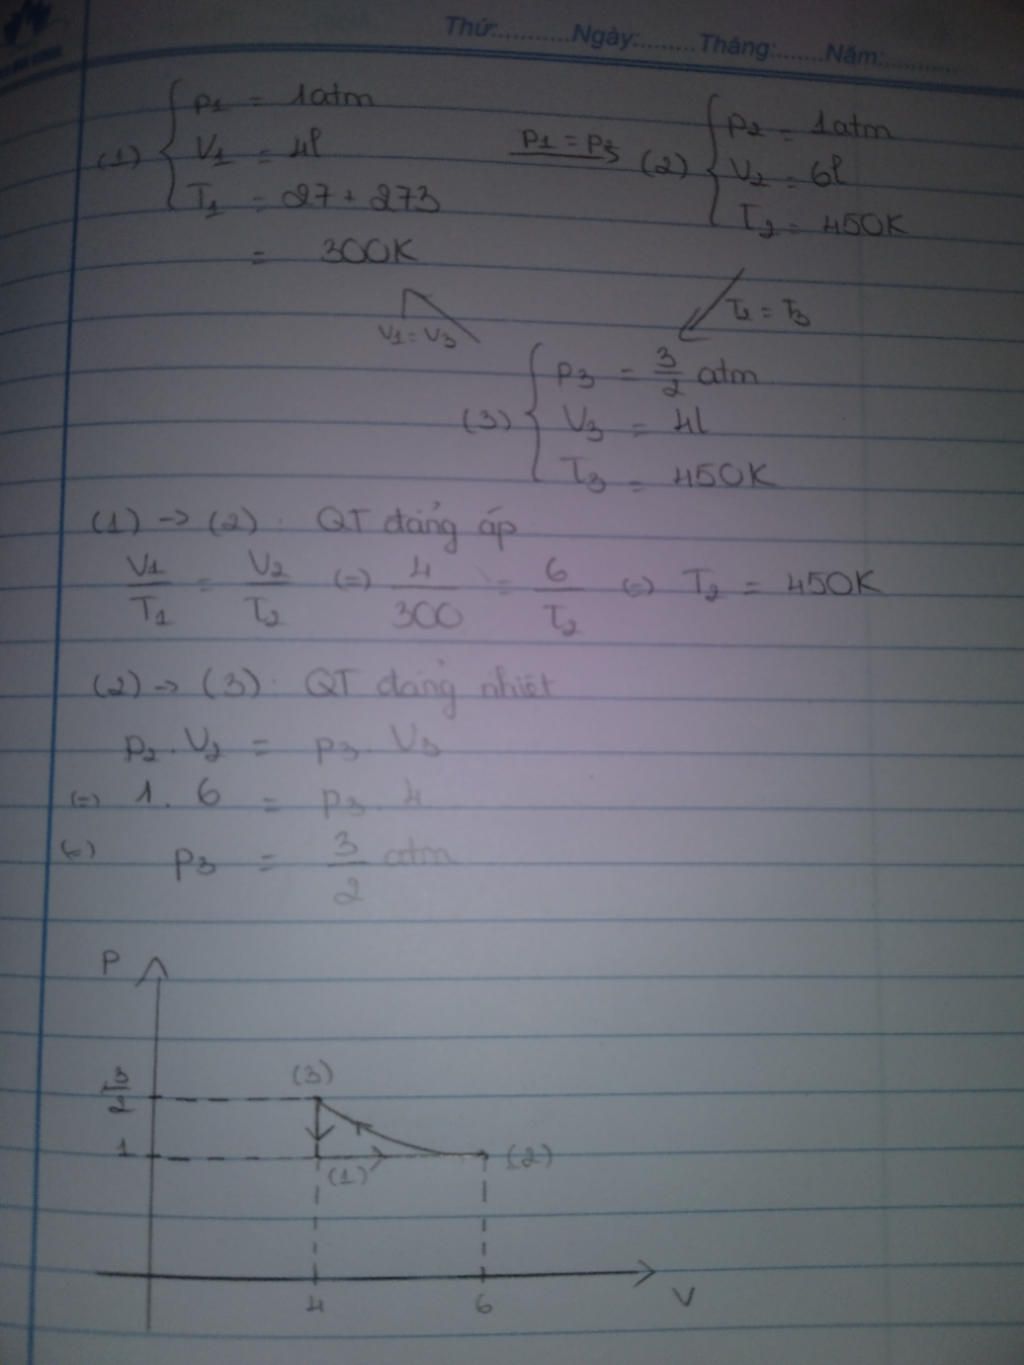 Thứ:...........Ngày:.........Tháng:.......Năm:............
(1) { p1 = 1atm
V1 = 4l
T1 = 27 + 273
= 300K
p1 = p2
(2) { p2 = 1atm
V2 = 6l
T2 = 450K
V1 = V3
T2 = T3
(3) { p3 = 3/2 atm
V3 = 4l
T3 = 450K
(1) -> (2): QT đẳng áp
V1/T1 = V2/T2 (=) 4/300 = 6/T2 (=) T2 = 450K
(2) -> (3): QT đẳng nhiệt
p2 . V2 = p3 . V3
(=) 1 . 6 = p3 . 4
(=) p3 = 3/2 atm
P
3/2
(3)
1
(1)
(2)
4
6
V